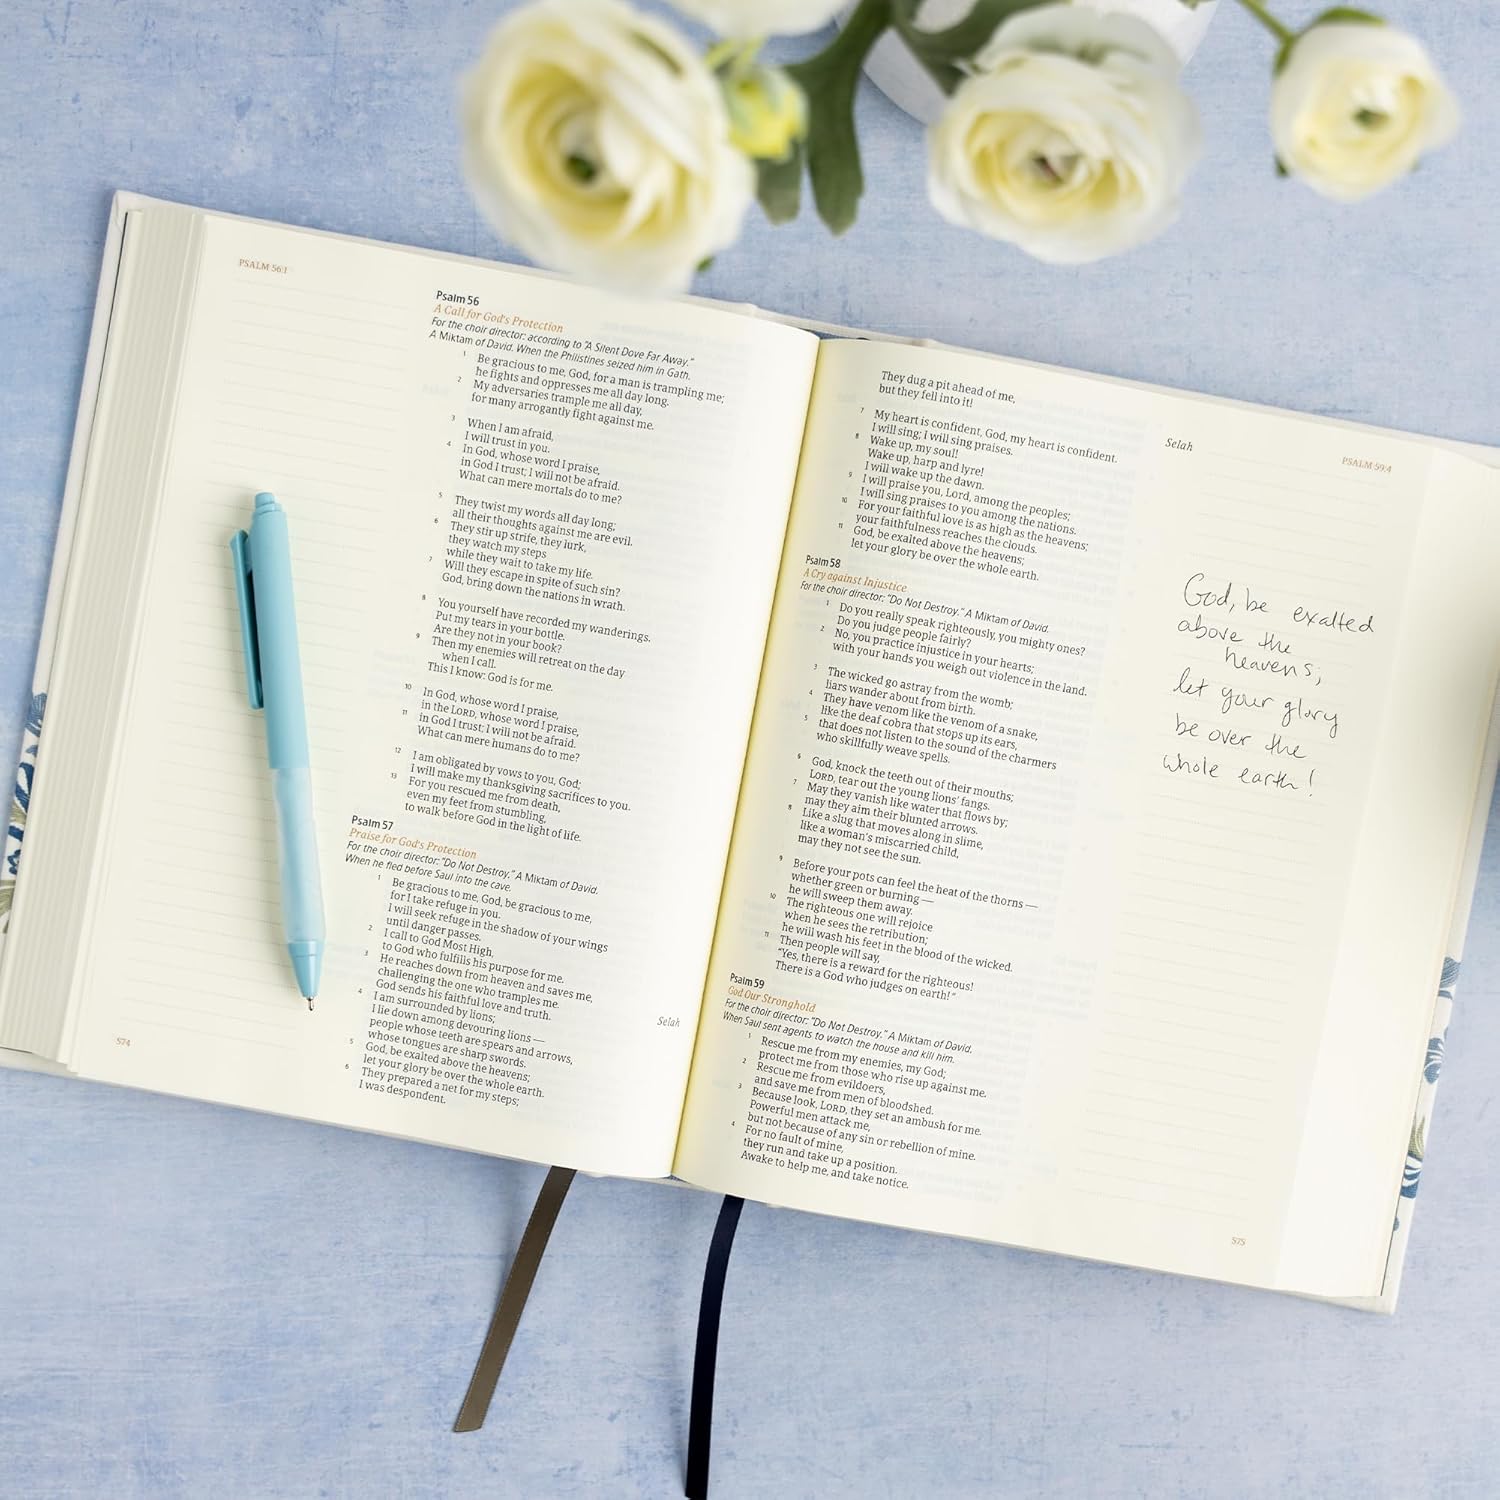 PSALM 56:1
Psalm 56
A Call for God's Protection
For the choir director: according to "A Silent Dove Far Away."
A Miktam of David. When the Philistines seized him in Gath.
1 Be gracious to me, God, for a man is trampling me;
he fights and oppresses me all day long.
2 My adversaries trample me all day,
for many arrogantly fight against me.
3 When I am afraid,
I will trust in you.
4 In God, whose word I praise,
in God I trust; I will not be afraid.
What can mere mortals do to me?
5 They twist my words all day long;
all their thoughts against me are evil.
6 They stir up strife, they lurk,
they watch my steps
while they wait to take my life.
7 Will they escape in spite of such sin?
God, bring down the nations in wrath.
8 You yourself have recorded my wanderings.
Put my tears in your bottle.
Are they not in your book?
9 Then my enemies will retreat on the day
when I call.
This I know: God is for me.
10 In God, whose word I praise,
in the LORD, whose word I praise,
11 in God I trust; I will not be afraid.
What can mere humans do to me?
12 I am obligated by vows to you, God;
I will make my thanksgiving sacrifices to you.
13 For you rescued me from death,
even my feet from stumbling,
to walk before God in the light of life.
Psalm 57
Praise for God's Protection
For the choir director: "Do Not Destroy." A Miktam of David.
When he fled before Saul into the cave.
1 Be gracious to me, God, be gracious to me,
for I take refuge in you.
I will seek refuge in the shadow of your wings
until danger passes.
2 I call to God Most High,
to God who fulfills his purpose for me.
3 He reaches down from heaven and saves me,
challenging the one who tramples me.
Selah
God sends his faithful love and truth.
4 I am surrounded by lions;
I lie down among devouring lions —
people whose teeth are spears and arrows,
whose tongues are sharp swords.
5 God, be exalted above the heavens;
let your glory be over the whole earth.
6 They prepared a net for my steps;
I was despondent.
574
They dug a pit ahead of me,
but they fell into it!
Selah
7 My heart is confident, God, my heart is confident.
I will sing; I will sing praises.
8 Wake up, my soul!
Wake up, harp and lyre!
I will wake up the dawn.
9 I will praise you, Lord, among the peoples;
I will sing praises to you among the nations.
10 For your faithful love is as high as the heavens;
your faithfulness reaches the clouds.
11 God, be exalted above the heavens;
let your glory be over the whole earth.
Psalm 58
A Cry against Injustice
For the choir director: "Do Not Destroy." A Miktam of David.
1 Do you really speak righteously, you mighty ones?
Do you judge people fairly?
2 No, you practice injustice in your hearts;
with your hands you weigh out violence in the land.
3 The wicked go astray from the womb;
liars wander about from birth.
4 They have venom like the venom of a snake,
like the deaf cobra that stops up its ears,
5 that does not listen to the sound of the charmers
who skillfully weave spells.
6 God, knock the teeth out of their mouths;
LORD, tear out the young lions' fangs.
7 May they vanish like water that flows by;
may they aim their blunted arrows.
8 Like a slug that moves along in slime,
like a woman's miscarried child,
may they not see the sun.
9 Before your pots can feel the heat of the thorns —
whether green or burning —
he will sweep them away.
10 The righteous one will rejoice
when he sees the retribution;
he will wash his feet in the blood of the wicked.
11 Then people will say,
"Yes, there is a reward for the righteous!
There is a God who judges on earth!"
Psalm 59
God Our Stronghold
For the choir director: "Do Not Destroy." A Miktam of David.
When Saul sent agents to watch the house and kill him.
1 Rescue me from my enemies, my God;
protect me from those who rise up against me.
2 Rescue me from evildoers,
and save me from men of bloodshed.
3 Because look, LORD, they set an ambush for me.
Powerful men attack me,
but not because of any sin or rebellion of mine.
4 For no fault of mine,
they run and take up a position.
Awake to help me, and take notice.
PSALM 59:4
God, be exalted
above the
heavens;
let your glory
be over the
whole earth!
575